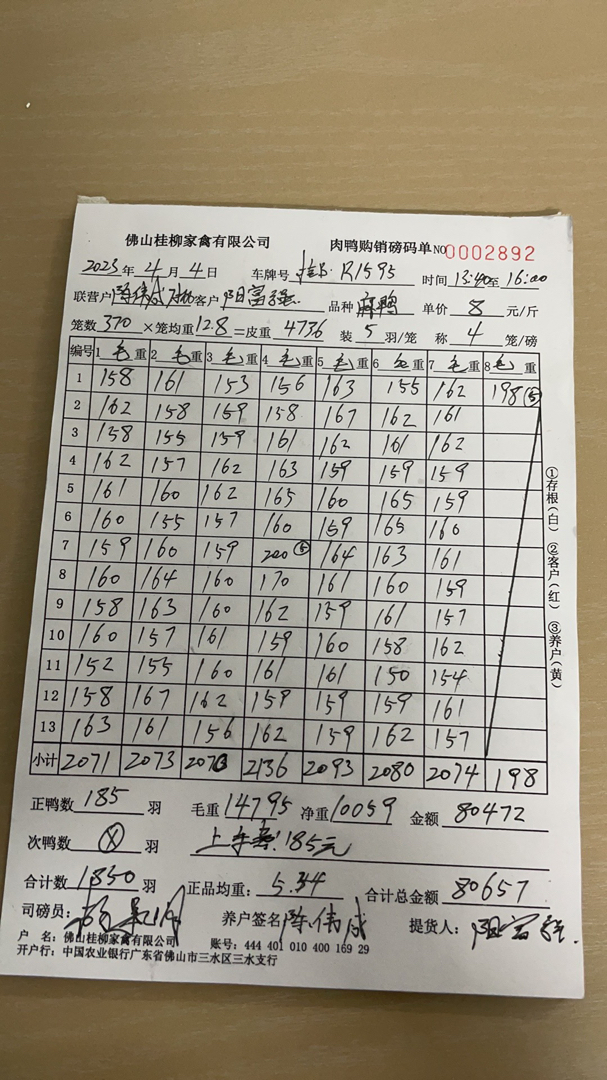 佛山桂柳家禽有限公司 肉鸭购销磅码单 NO 0002892
2023年4月4日 车牌号 R1595 时间 13:40至16:00
联营户 陈伟成 客户 阳富强 品种 麻鸭 单价 8 元/斤
笼数 370 ×笼均重 12.8 =皮重 4736 装 5 羽/笼 称 4 笼/磅
编号 1 毛 重 2 毛 重 3 毛 重 4 毛 重 5 毛 重 6 毛 重 7 毛 重 8 毛 重
1 158 161 153 156 163 155 162 198 ⑤
2 162 158 159 158 167 162 161
3 158 155 159 161 162 161 162
4 162 157 162 163 159 159 159
5 161 160 162 165 160 165 159
6 160 155 157 160 159 165 160
7 159 160 159 200 ⑤ 164 163 161
8 160 164 160 170 161 160 159
9 158 163 160 162 159 161 157
10 160 157 161 159 160 158 162
11 152 155 160 161 161 150 154
12 158 167 162 159 159 159 161
13 163 161 156 162 159 162 157
小计 2071 2073 2070 2136 2093 2080 2074 198
正鸭数 185 羽 毛重 14795 净重 10059 金额 80472
次鸭数 羽 上车费 185元
合计数 1850 羽 正品均重: 5.44 合计总金额 80657
司磅员: 养户签名 陈伟成 提货人: 阳富强.
户 名: 佛山桂柳家禽有限公司 账号: 444 401 010 400 169 29
开户行: 中国农业银行广东省佛山市三水区三水支行
①存根(白) ②客户(红) ③养户(黄)